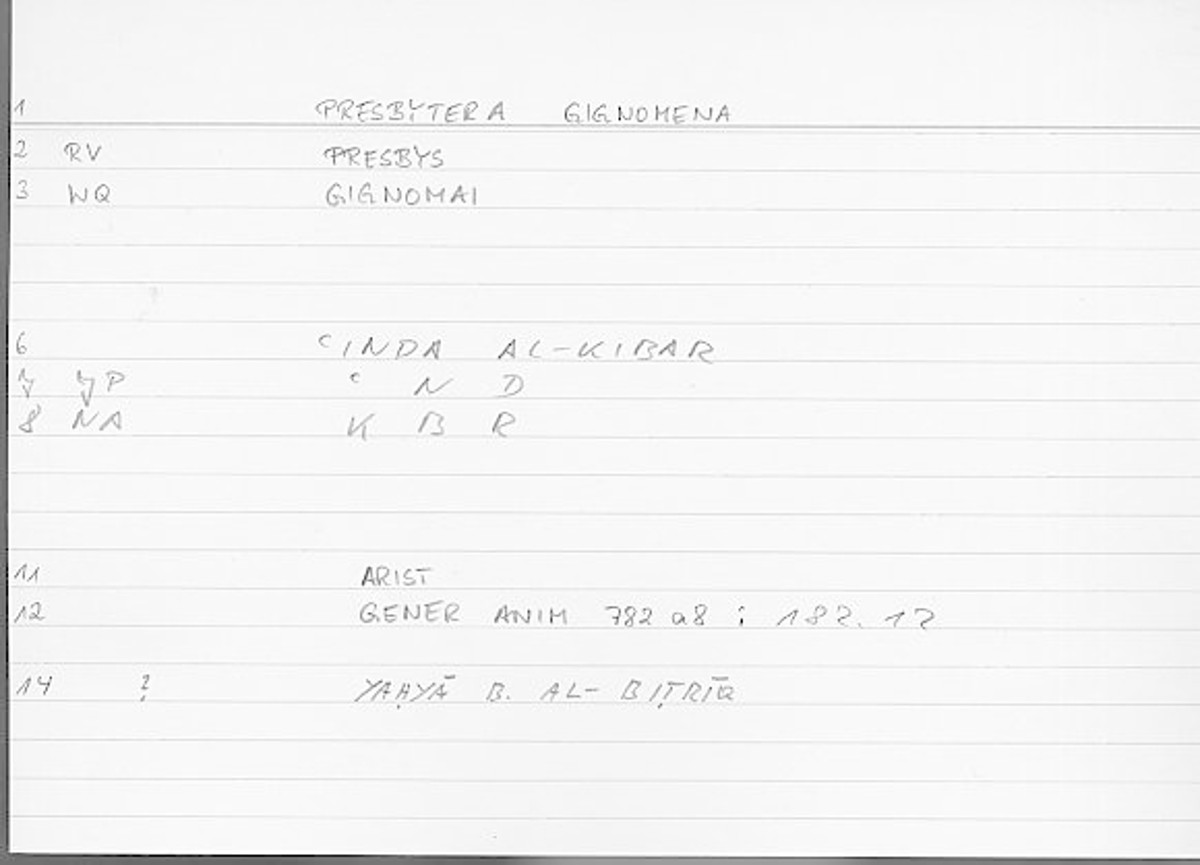 1 PRESBYTERA GIGNOMENA
2 RV PRESBYS
3 WQ GIGNOMAI
6 ʿINDA AL-KIBAR
7 YP ʿ N D
8 NA K B R
11 ARIST
12 GENER ANIM 782 a8 ; 182.12
14 ? YAḤYĀ B. AL-BIṬRĪQ